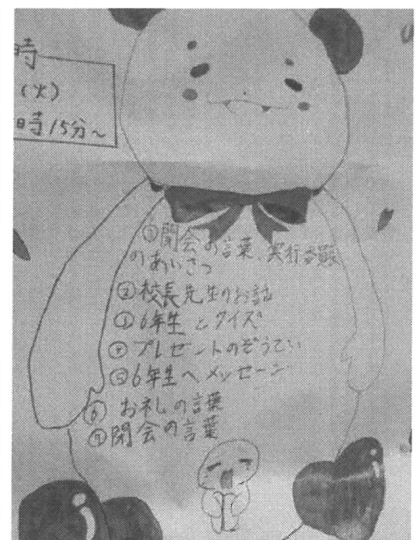 時
(火)
時15分～
①開会の言葉、実行委員
のあいさつ
②校長先生のお話
③6年生とクイズ
④プレゼントのぞうてい
⑤6年生へメッセージ
⑥ お礼の言葉
⑦閉会の言葉